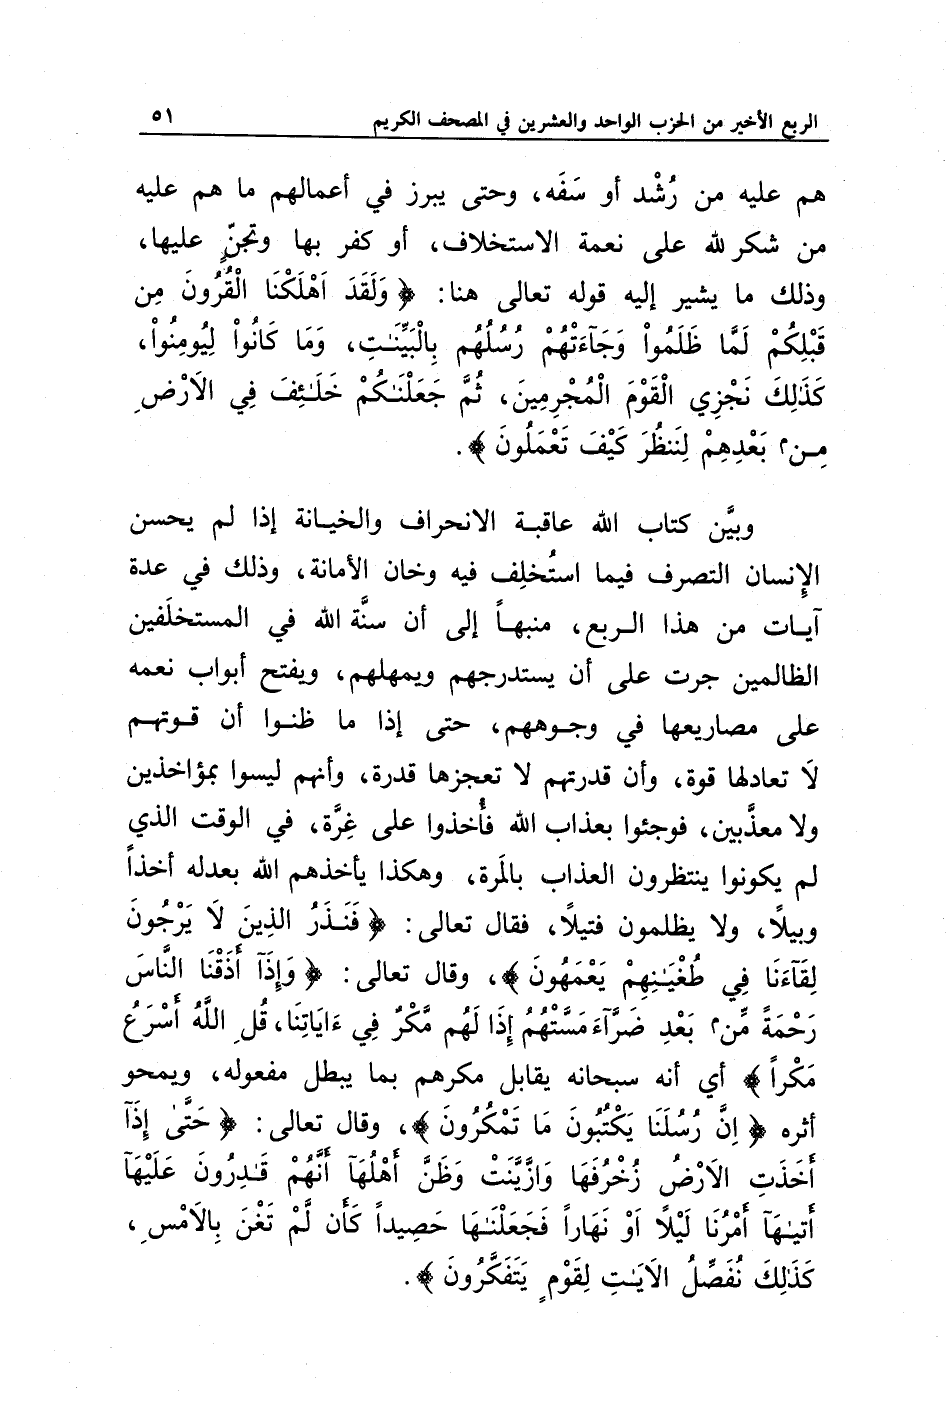 الربع الأخير من الحزب الواحد والعشرين في المصحف الكريم ٥١
هم عليه من رُشْد أو سَفَه، وحتى يبرز في أعمالهم ما هم عليه
من شكر لله على نعمة الاستخلاف، أو كفر بها وتجنٍّ عليها،
وذلك ما يشير إليه قوله تعالى هنا: ﴿ وَلَقَدَ اَهْلَكْنَا الْقُرُونَ مِن
قَبْلِكُمْ لَمَّا ظَلَمُواْ وَجَآءَتْهُمْ رُسُلُهُم بِالْبَيِّنَـٰتِ، وَمَا كَانُواْ لِيُومِنُواْ،
كَذَٰلِكَ نَجْزِي الْقَوْمَ الْمُجْرِمِينَ، ثُمَّ جَعَلْنَـٰكُمْ خَلَـٰئِفَ فِي الاَرْضِ
مِـن م بَعْدِهِمْ لِنَنظُرَ كَيْفَ تَعْمَلُونَ ﴾.
وبيَّن كتاب الله عاقبـة الانحراف والخيـانة إذا لم يحسن
الإِنسان التصرف فيما استُخلِف فيه وخان الأمانة، وذلك في عدة
آيـات من هذا الـربع، منبهـاً إلى أن سنَّة الله في المستخلَفين
الظالمين جرت على أن يستدرجهم ويمهلهم، ويفتح أبواب نعمه
على مصاريعها في وجـوههم، حتى إذا ما ظنـوا أن قـوتهـم
لَا تعادلها قوة، وأن قدرتهم لا تعجزها قدرة، وأنهم ليسوا بمؤاخذين
ولا معذَّبين، فوجئوا بعذاب الله فأُخذوا على غِرَّة، في الوقت الذي
لم يكونوا ينتظرون العذاب بالمَرة، وهكذا يأخذهم الله بعدله أخذاً
وبيلًا، ولا يظلمون فتيلًا، فقال تعالى: ﴿ فَنَـذَرُ الذِينَ لَا يَرْجُونَ
لِقَآءَنَا فِي طُغْيَـٰنِهِمْ يَعْمَهُونَ ﴾، وقال تعالى: ﴿ وَإِذَآ أَذَقْنَا النَّاسَ
رَحْمَةً مِّن م بَعْدِ ضَرَّآءَ مَسَّتْهُمُ إِذَا لَهُم مَّكْرٌ فِي ءَايَاتِنَا، قُلِ اللَّهُ أَسْرَعُ
مَكْراً ﴾ أي أنه سبحانه يقابل مكرهم بما يبطل مفعوله، ويمحو
أثره ﴿ اِنَّ رُسُلَنَا يَكْتُبُونَ مَا تَمْكُرُونَ ﴾، وقال تعالى: ﴿ حَتَّىٰ إِذَآ
أَخَذَتِ الاَرْضُ زُخْرُفَهَا وَازَّيَّنَتْ وَظَنَّ أَهْلُهَآ أَنَّهُمْ قَـٰدِرُونَ عَلَيْهَآ
أَتيٰـهَآ أَمْرُنَا لَيْلًا اَوْ نَهَاراً فَجَعَلْنَـٰهَا حَصِيداً كَأَن لَّمْ تَغْنَ بِالَامْسِ،
كَذَٰلِكَ نُفَصِّلُ الاَيَـٰتِ لِقَوْمٍ يَتَفَكَّرُونَ ﴾.